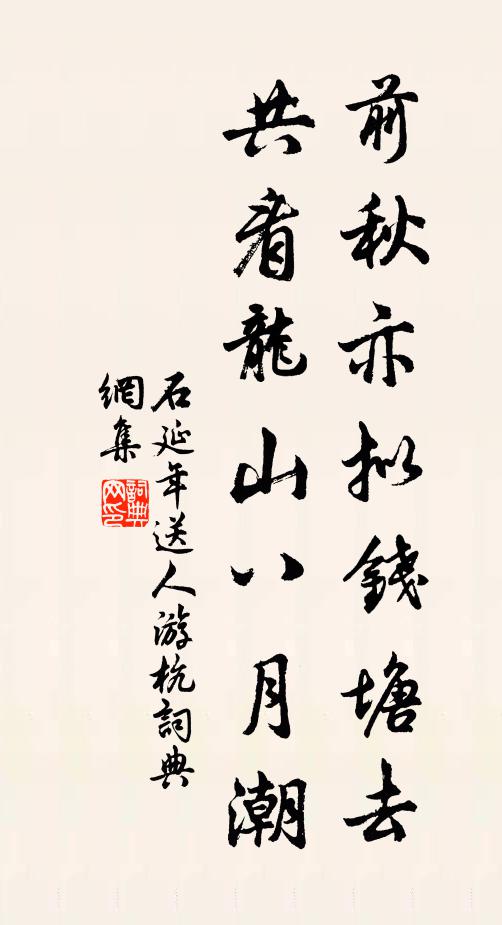 前秋亦拟錢塘去
共看龍山八月潮
石延年送人游杭詞典
網集
詞典
网印